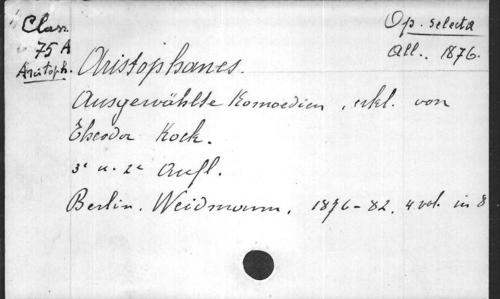 Class.
75 A
Aristoph.
Op. selecta
All. 1876.
Aristophanes.
Ausgewählte Komoedien, erkl. von
Theodor Kock.
3e u. 2e Aufl.
Berlin. Weidmann. 1876-82. 4 vol. in 8